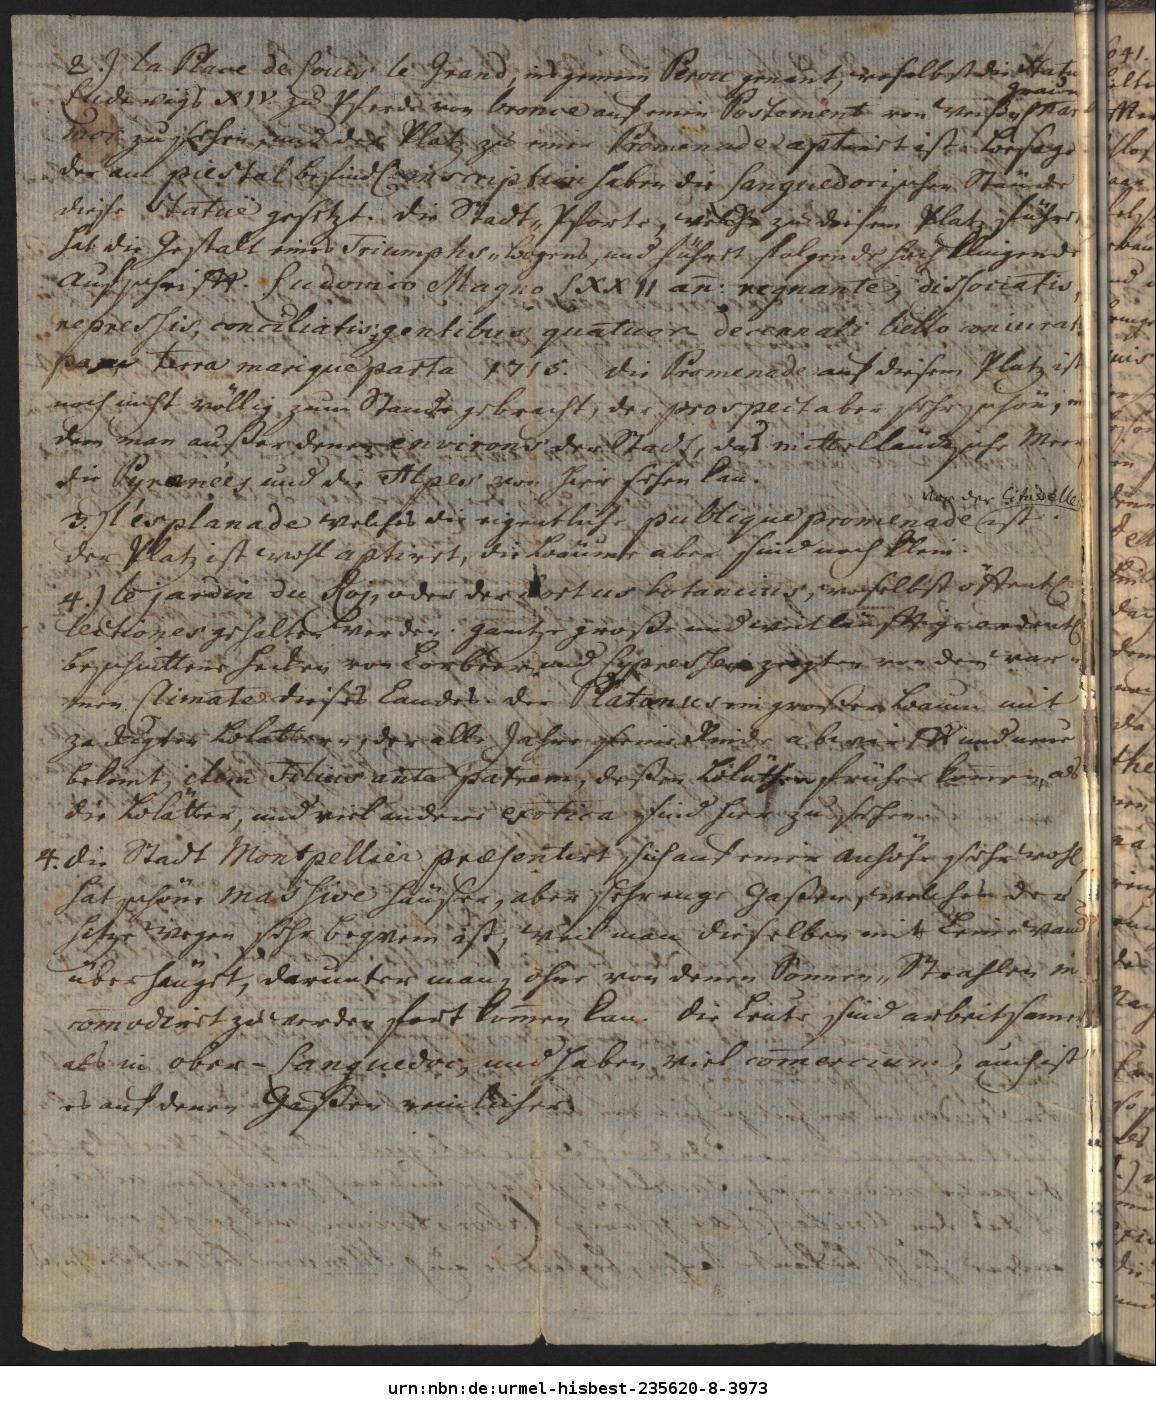 2.) la Place de Louis le Grand, ins gemein Perou genant, woselbst die Statue
Ludewigs XIV. zu Pferde von bronce auf einem Postement von weißen grauen Mar-
mor zu sehen, und der Platz zu einer Promenade aptirt ist. Besage
der am piestal befindl. inscription haben die Languedocischen Stände
diese Statuë gesetzt. Die Stadt-Pforte, welche zu diesem Platz führet
hat die Gestalt eines Triumphs-Bogens, und führet folgende hoch klingende
Aufschrifft. Ludovico Magno LXXII añ: regnante, dissociatis,
repressis, conciliatis gentibus quatuor decennali bello coniurat.
pace terra marique parta 1715. Die Promenade auf diesem Platz ist
noch nicht völlig zum Stande gebracht, der prospect aber sehr schön, in
dem man außer denen environs der Stadt, das mittelländische Meer
die Pyrenées und die Alpes von hier sehen kan.
vor der Citadelle
3.) l'esplanade welches die eigentliche publique promenade ist.
der Platz ist wohl aptiret, die Bäume aber sind noch klein.
4.) le jardin du Roy, oder der hortus botanicus, woselbst öffentl.
lectiones gehalten werden. Gantze große und weitläufftige ordentl.
beschnittene Hecken von Lorbeer und Cypressen zeugten von dem war-
men Climate dieses Landes. Der Platanus ein großer Baum mit
zackigten Blättern, der alle Jahre seine Rinde abwirfft und neue
bekomt, item Filius ante patrem, deßen Blüthen früher kom̄en, als
die Blätter, und viel andere exotica sind hier zu sehen.
4. Die Stadt Montpellier præsentirt sich auf einer Anhöhe sehr wohl,
hat schöne massive Häußer, aber sehr enge Gaßen, welches der
Hitze wegen sehr beqvem ist, weil man dieselben mit Leinewand
überhängt, darunter man, ohne von denen Sonnen-Strahlen in-
com̄odiret zu werden fort kom̄en kan. Die Leute sind arbeitsamer
als in ober-Languedoc, und haben viel com̄ercium, auch ist
es auf denen Gaßen reinlicher.
urn:nbn:de:urmel-hisbest-235620-8-3973